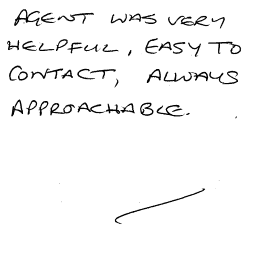 AGENT WAS VERY
HELPFUL, EASY TO
CONTACT, ALWAYS
APPROACHABLE.